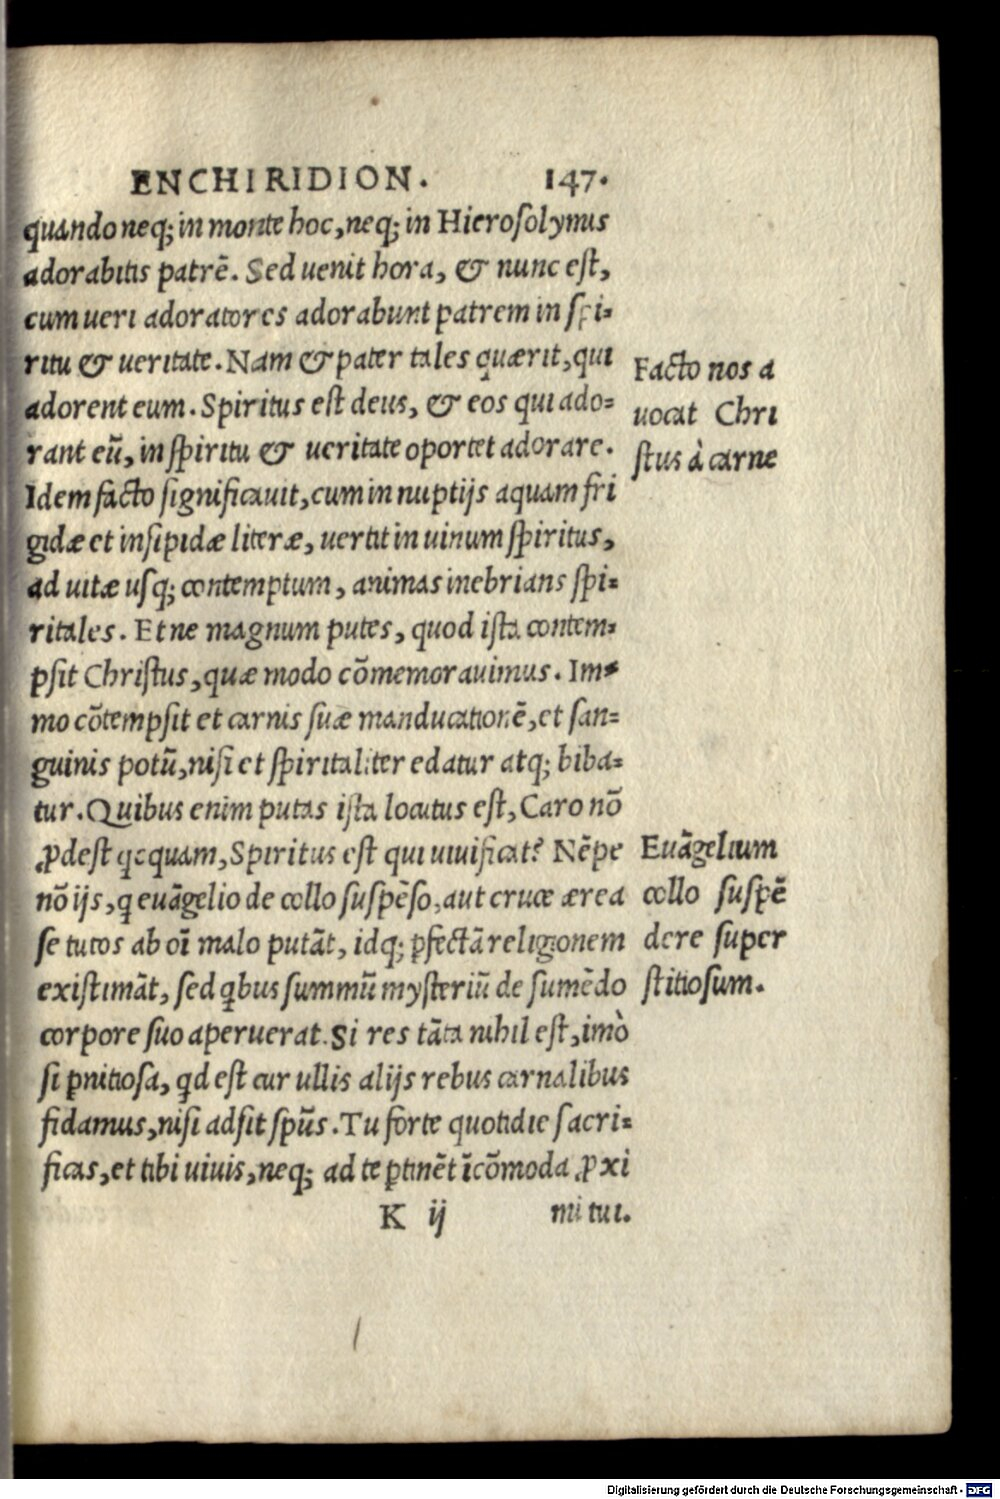 ENCHIRIDION. 147.
quando neq; in monte hoc, neq; in Hierosolymis
adorabitis patrē. Sed uenit hora, & nunc est,
cum ueri adoratores adorabunt patrem in spi-
ritu & ueritate. Nam & pater tales quærit, qui
adorent eum. Spiritus est deus, & eos qui ado-
rant eū, in spiritu & ueritate oportet adorare.
Idem facto significauit, cum in nuptijs aquam fri
gidæ et insipidæ literæ, uertit in uinum spiritus,
ad uitæ usq; contemptum, animas inebrians spi-
ritales. Et ne magnum putes, quod ista contem-
psit Christus, quæ modo cōmemorauimus. Im-
mo cōtempsit et carnis suæ manducationē, et san-
guinis potū, nisi et spiritaliter edatur atq; biba-
tur. Quibus enim putas ista locutus est, Caro nō
ꝓdest qcquam, Spiritus est qui uiuificat? Nēpe
nō ijs, q euāgelio de collo suspēso, aut cruce ærea
se tutos ab oī malo putāt, idq; ꝑfectā religionem
existimāt, sed qbus summū mysteriū de sumēdo
corpore suo aperuerat. Si res tāta nihil est, imò
si ꝑnitiosa, qd est cur ullis alijs rebus carnalibus
fidamus, nisi adsit spūs. Tu forte quotidie sacri-
ficas, et tibi uiuis, neq; ad te ꝑtinēt īcōmoda ꝓxi
K ij mi tui.
Facto nos a
uocat Chri
stus à carne
Euāgelium
collo suspē
dere super
stitiosum.
Digitalisierung gefördert durch die Deutsche Forschungsgemeinschaft - DFG